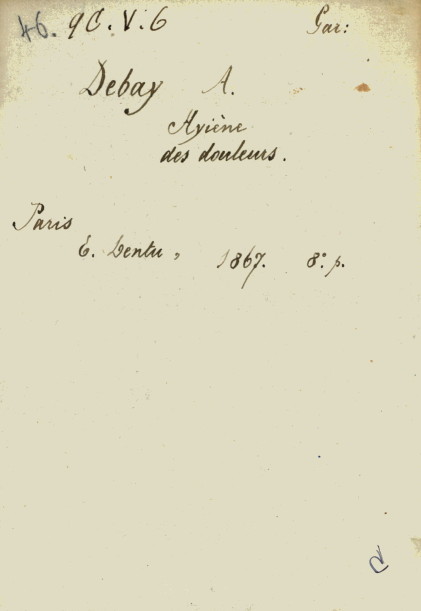 46. 9C.V.6 Gar:
Debay A.
Hyiène
des douleurs.
Paris
E. Dentu, 1867. 8º. p.